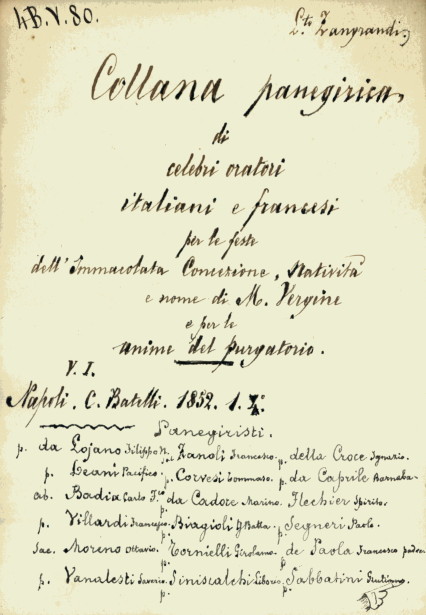 4B.V.80.
L.ti Zangrandi
Collana panegirica
di
celebri oratori
italiani e francesi
per le feste
dell'Immacolata Concezione, Natività
e nome di M. Vergine
e per le
anime del purgatorio.
V. I.
Napoli. C. Batelli. 1852. 1.
Panegiristi.
p. da Lojano Filippo N. Zanoli Francesco. p. della Croce Ignazio.
p. Deani Pacifico. p. Corvesi Tommaso. p. da Caprile Barnaba.
ab. Badia Carlo F.co da Cadore Marino. Flechier Spirito.
p. Villardi Francesco. p. Biagioli G Batta. p. Segneri Paolo.
sac. Moreno Ottavio. Tornielli Girolamo. de Paola Francesco padre.
p. Vanalesti Saverio. p. Siniscalchi Liborio. p. Sabbatini Giuliano.